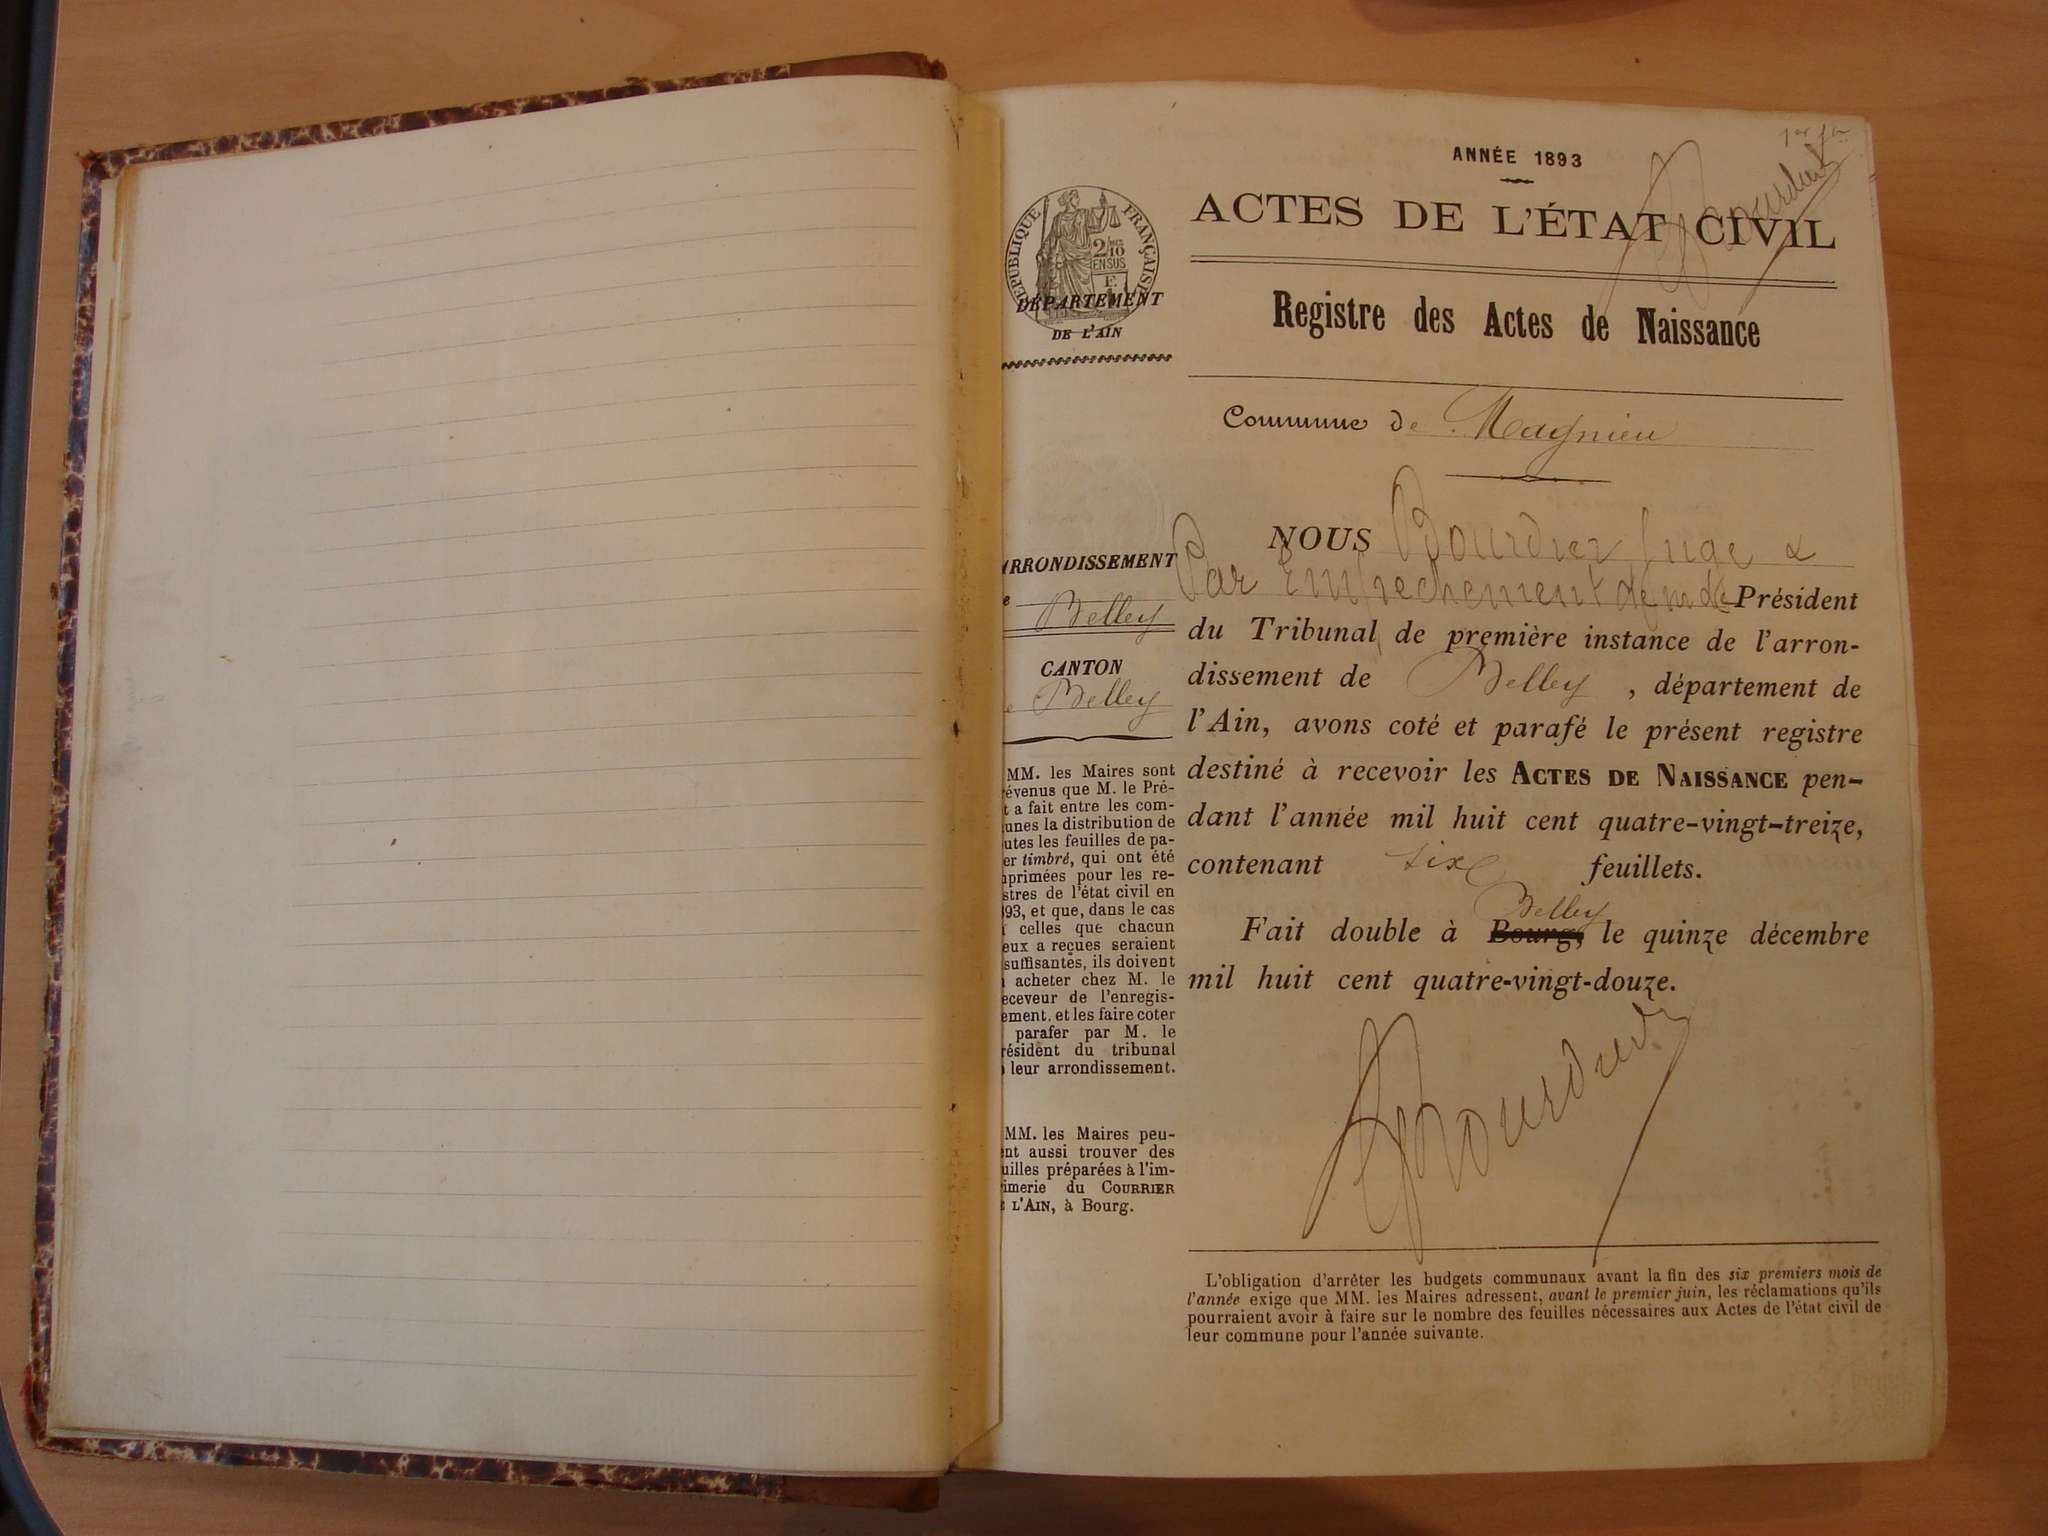 1er fer
ANNÉE 1893
ACTES DE L'ÉTAT CIVIL
RÉPUBLIQUE FRANÇAISE
2/10
EN SUS
DÉPARTEMENT
DE L'AIN
Registre des Actes de Naissance
Commune de Magnieu
ARRONDISSEMENT
e Belley
CANTON
e Belley
MM. les Maires sont
évenus que M. le Pré-
t a fait entre les com-
unes la distribution de
utes les feuilles de pa-
er timbré, qui ont été
primées pour les re-
stres de l'état civil en
93, et que, dans le cas
celles que chacun
eux a reçues seraient
suffisantes, ils doivent
acheter chez M. le
eceveur de l'enregis-
ement, et les faire coter
parafer par M. le
résident du tribunal
leur arrondissement.
MM. les Maires peu-
nt aussi trouver des
uilles préparées à l'im-
imerie du COURRIER
L'AIN, à Bourg.
NOUS Bourdier Juge &
Par Empechement de m. le Président
du Tribunal de première instance de l'arron-
dissement de Belley, département de
l'Ain, avons coté et parafé le présent registre
destiné à recevoir les ACTES DE NAISSANCE pen-
dant l'année mil huit cent quatre-vingt-treize,
contenant six feuillets.
Belley
Fait double à Bourg, le quinze décembre
mil huit cent quatre-vingt-douze.
Bourdier
L'obligation d'arrêter les budgets communaux avant la fin des six premiers mois de
l'année exige que MM. les Maires adressent, avant le premier juin, les réclamations qu'ils
pourraient avoir à faire sur le nombre des feuilles nécessaires aux Actes de l'état civil de
leur commune pour l'année suivante.